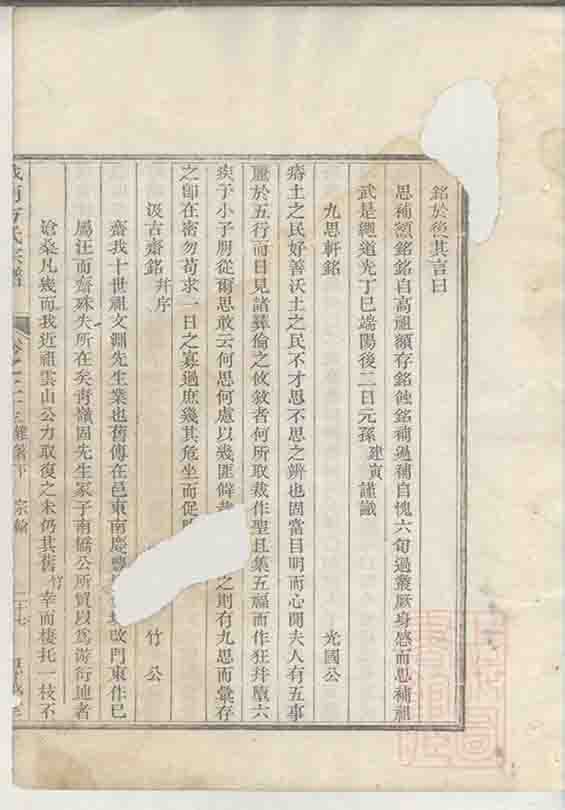 銘於後其言曰
思補額銘銘自高祖額存銘蝕銘補過補自愧六旬過叢厥身感而思補祖
武是繩道光丁巳端陽後二日元孫建寅謹識
九思軒銘 光國公
瘠土之民好善沃土之民不才思不思之辨也固當目明而心開夫人有五事
臚於五行而日見諸彞倫之攸敘者何所取裁作聖且集五福而作狂幷膺六
疾于小子朋從爾思敢云何思何慮以幾匪僻 之則有九思而彙存
之卽在密勿苟求一日之寡過庶幾其危坐而促
汲古齋銘幷序 竹公
齋我十世祖文淵先生業也舊傳在邑東南慶 改門東作巳
屬汪而齋殊失所在矣靑嶺固先生冢子南僑公所貿以爲游衍地者
滄桑凡幾而我近祖雲山公力取復之未仍其舊竹幸而棲托一枝不
氏宗譜 卷之二十三雜著下 宗翰 二十七